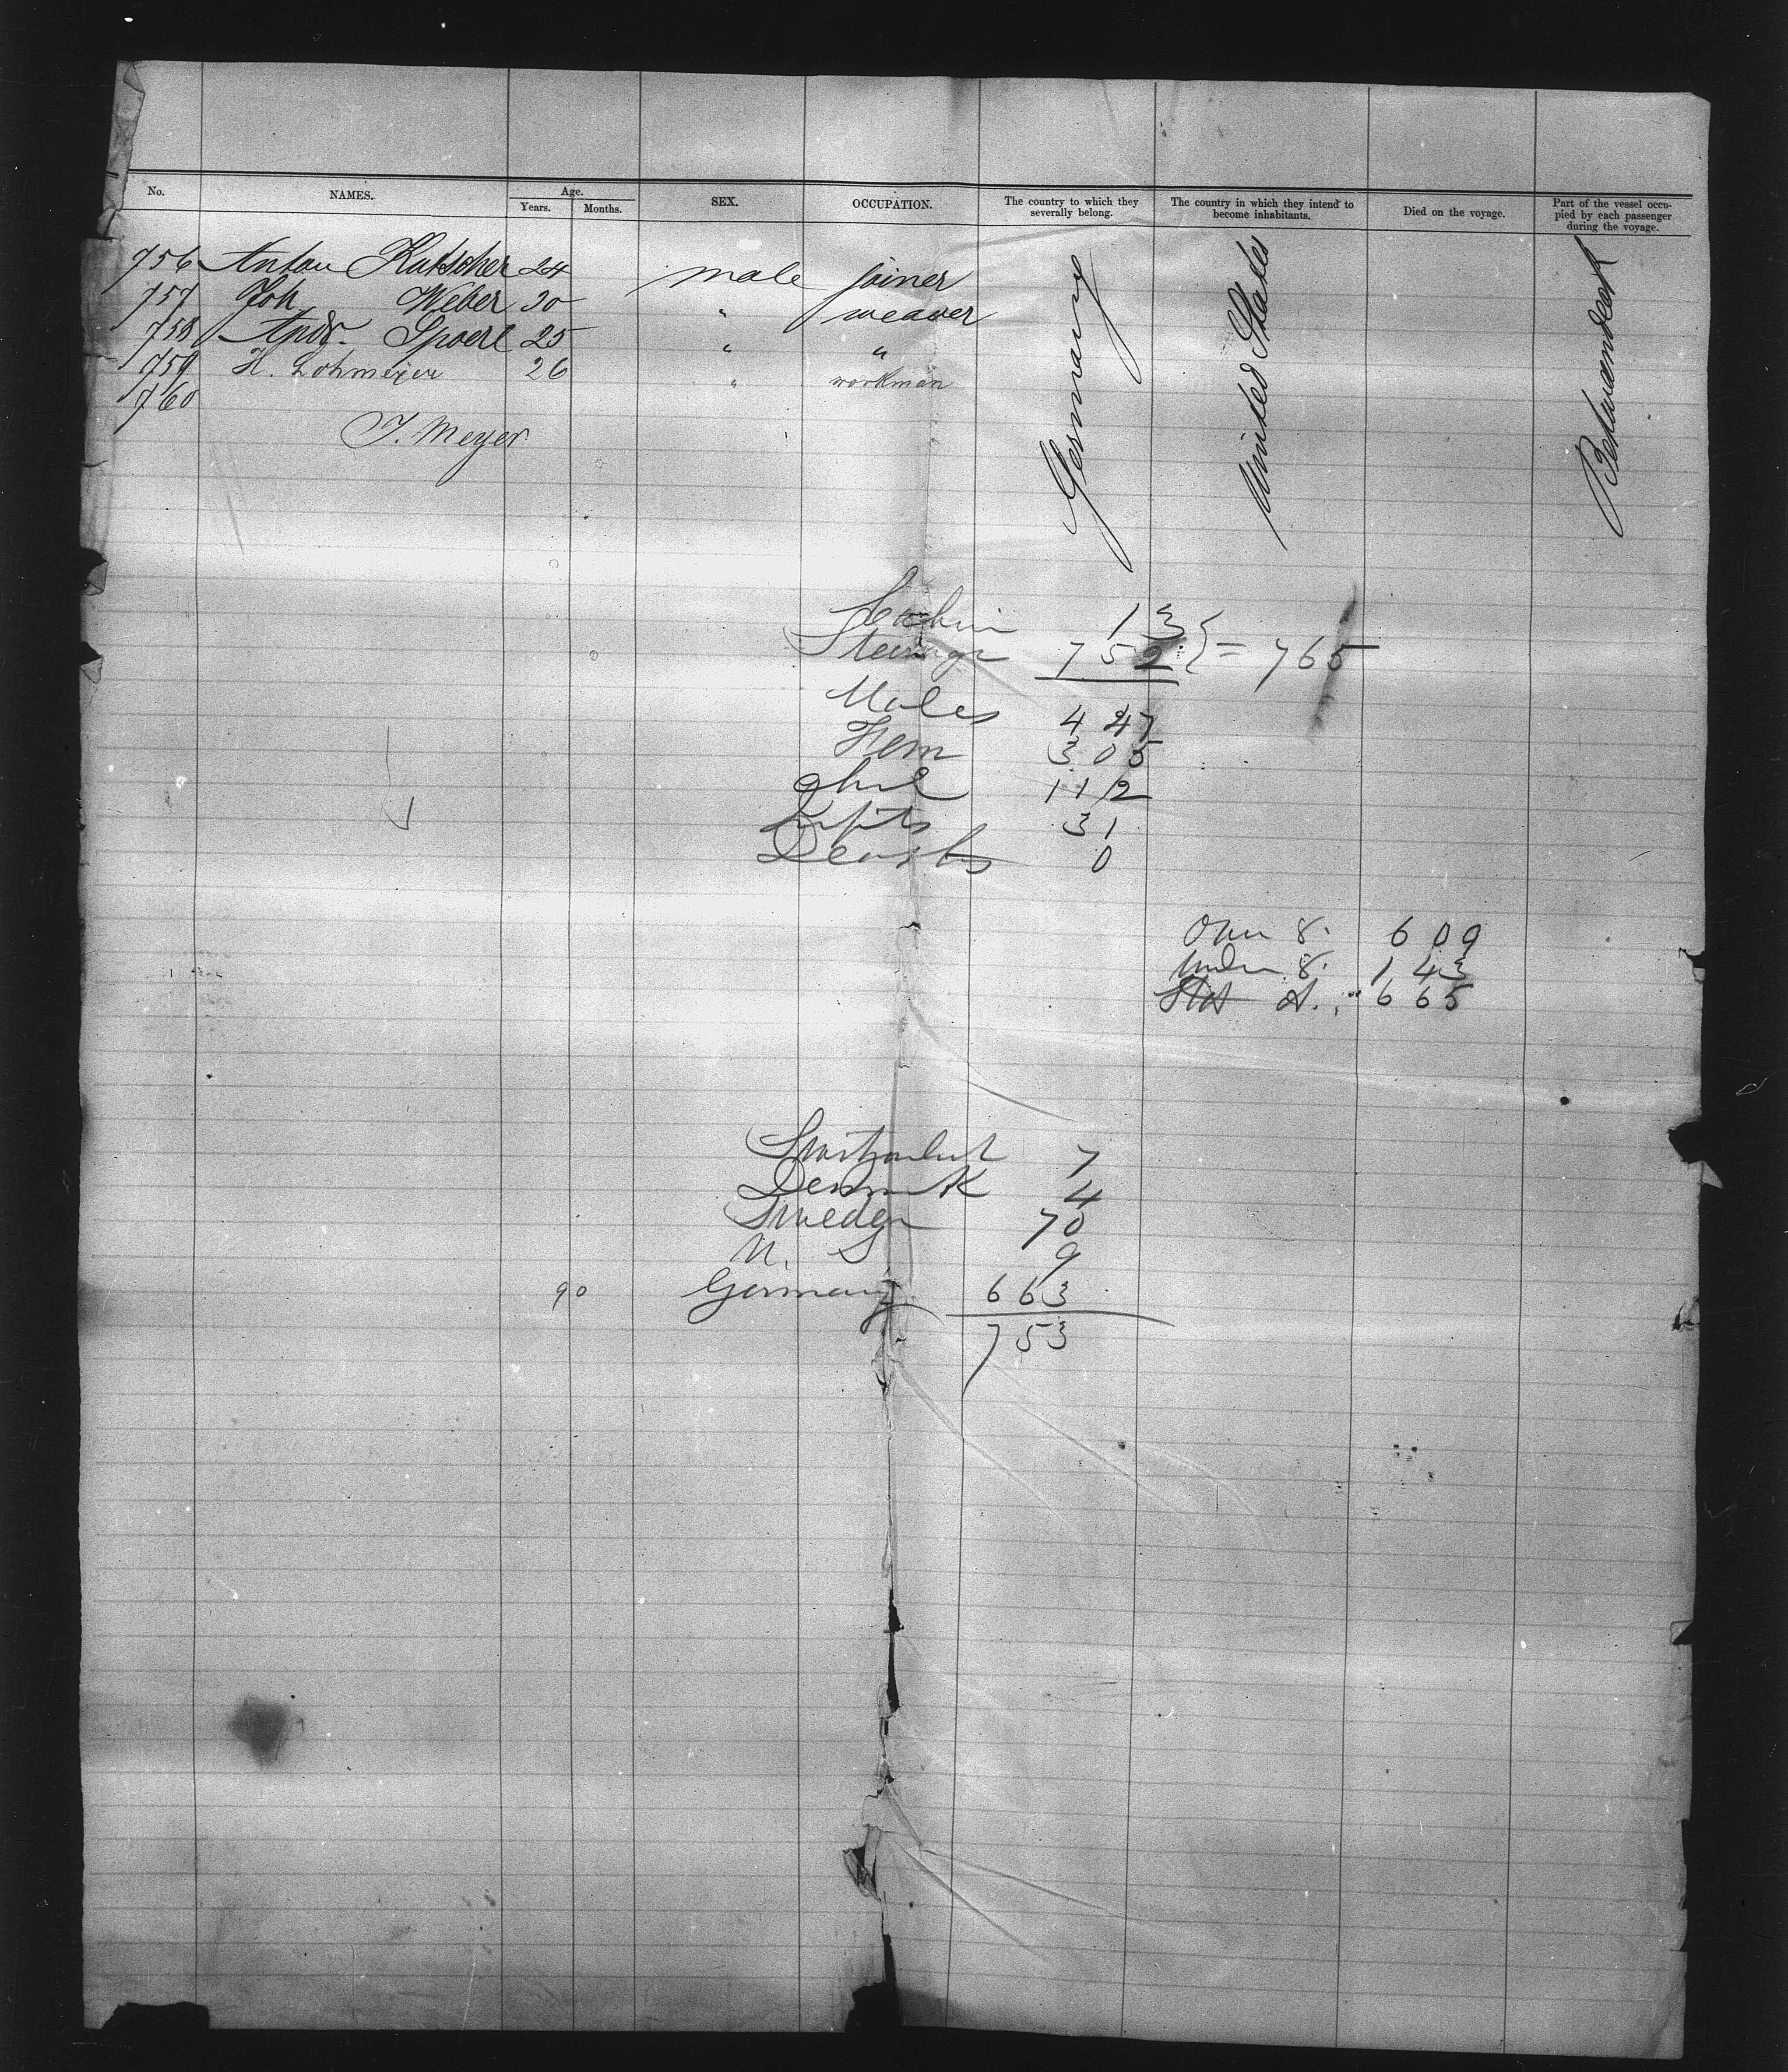 No. NAMES. Age. Years. Months. SEX. OCCUPATION. The country to which they severally belong. The country in which they intend to become inhabitants. Died on the voyage. Part of the vessel occupied by each passenger during the voyage.
756 Anton Kutscher 24 male joiner
757 Joh Weber 30 " weaver
758 Andr. Spoerl 25 " "
759 H. Lohmeijer 26 " workman
760
J. Meyer
Germany
United States
Betweendeck
Cabin 13
Steerage 752 } = 765
Males 447
Fem 305
Chil 112
Infts 31
Deaths 0
Over 8. 609
Under 8. 143
Stat A. 665
Switzerland 7
Denmark 4
Sweden 70
U. S 9
90 Germany 663
753